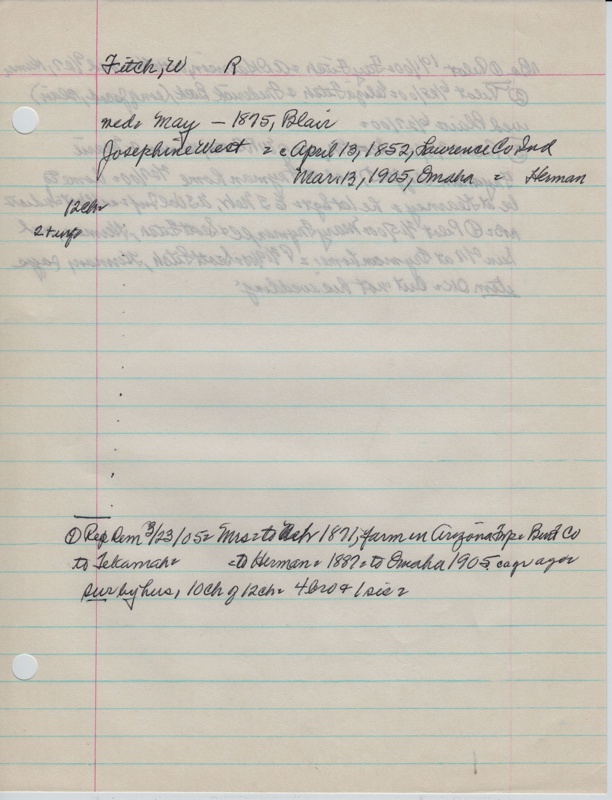 Fitch, W R
med= May - 1875, Blair
Josephine West = c April 13, 1852, Lawrence Co, Ind
Mar 13, 1905, Omaha = Herman
12 ch=
2+
① Rep Dem 3/23/05= Mrs= to Neb 1871, farm in Arizona Twp= Burt Co
to Tekamah= =to Herman= 1887= to Omaha 1905
sur by hus, 10 ch of 12 ch= 4 bro + 1 sis=